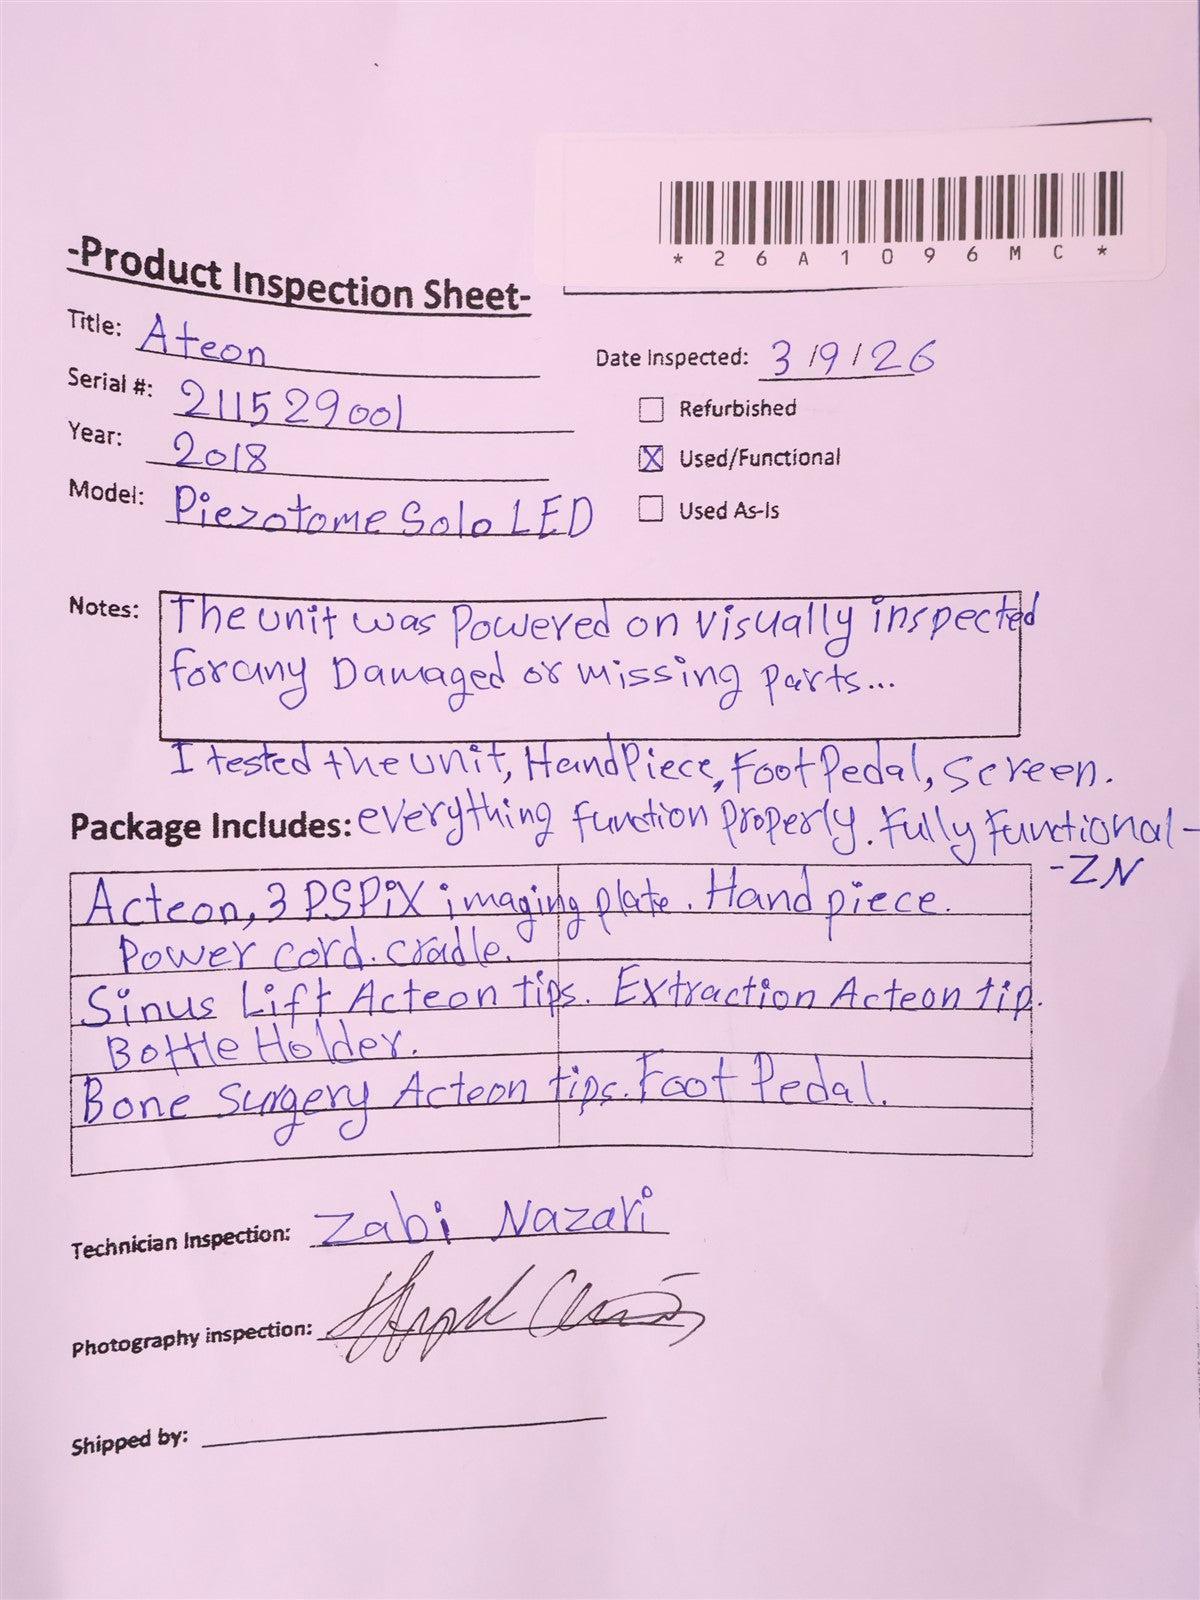 *26A1096MC*
-Product Inspection Sheet-
Title: Ateon
Date Inspected: 3/9/26
Serial #: 211529001
Refurbished
Year: 2018
Used/Functional
Model: Piezotome Solo LED
Used As-Is
Notes: The unit was Powered on visually inspected
for any Damaged or missing parts...
I tested the unit, HandPiece, Foot Pedal, Screen.
Package Includes: everything function properly. Fully functional-
-ZN
Acteon, 3 PSPiX imaging plate. Hand piece.
Power cord. cradle.
Sinus Lift Acteon tips. Extraction Acteon tip.
Bottle Holder.
Bone Surgery Acteon tips. Foot Pedal.
Technician Inspection: Zabi Nazari
Photography inspection:
Shipped by: